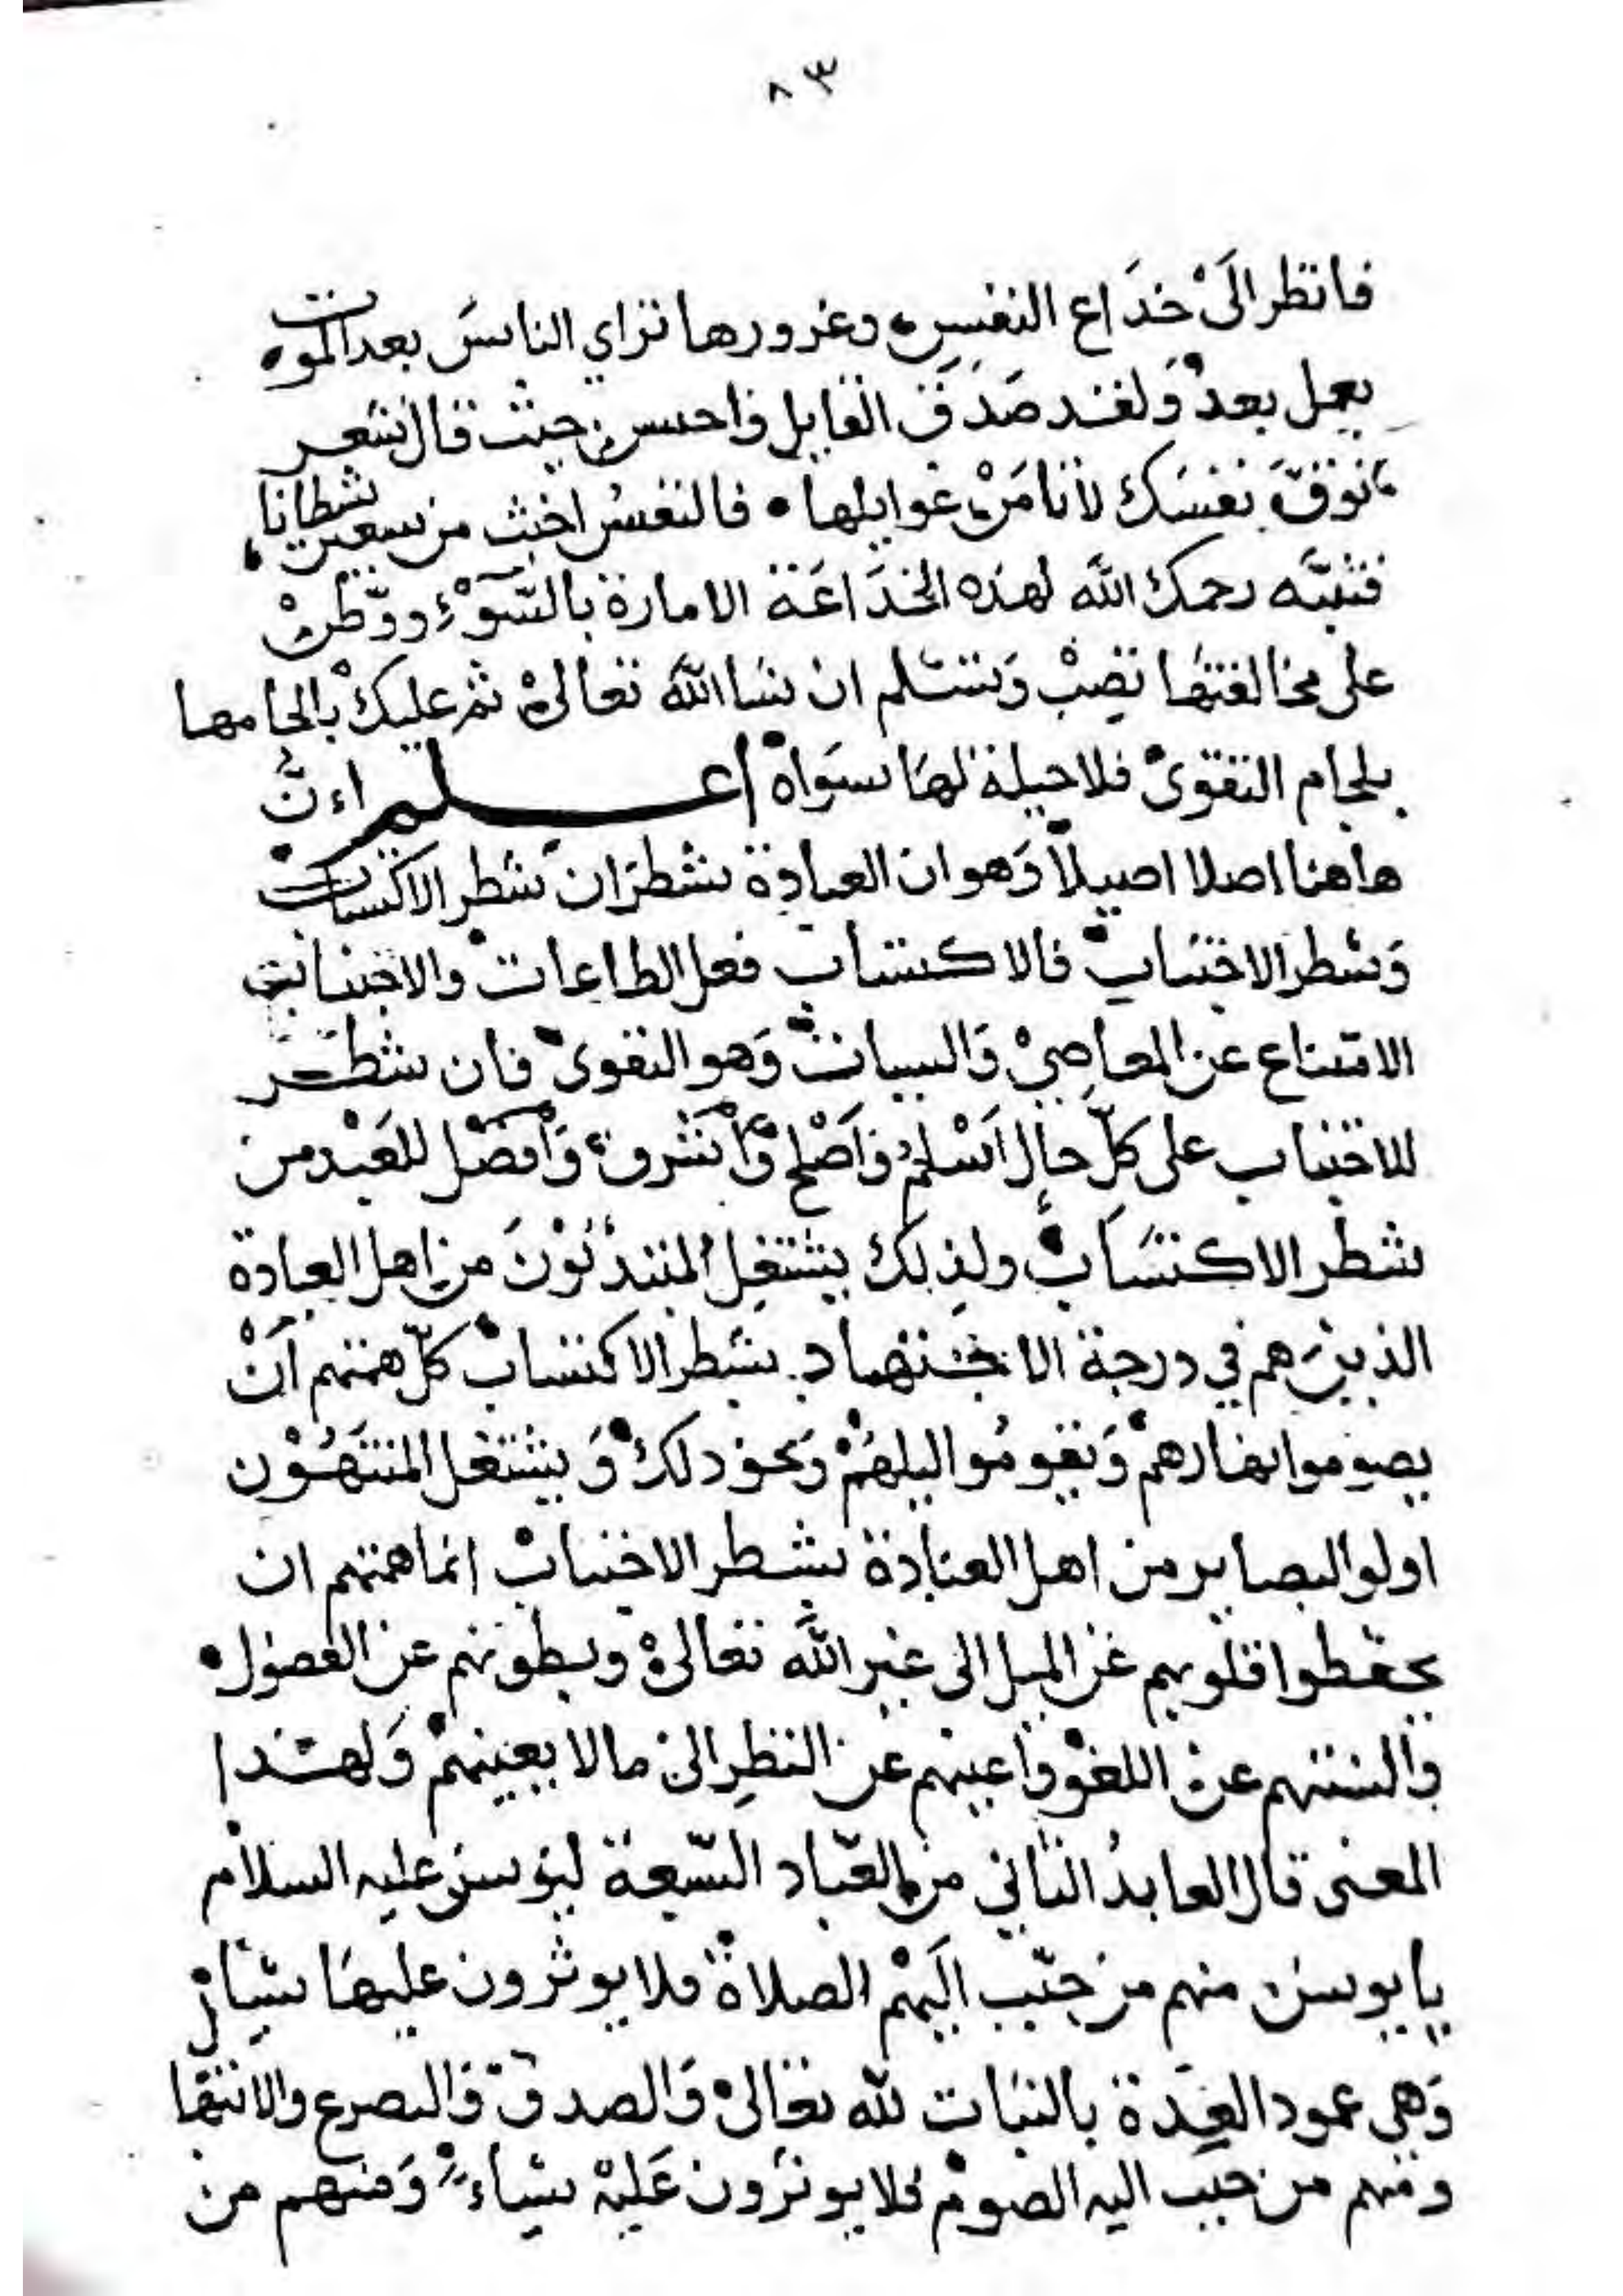 ٨٣
فانظر الَىْ خدَاع النفسِ وغرورها تراي الناسَ بعد الموت
بعمل بعدُ وَلقد صَدَقَ القايل فاحسن حيث قال شعر
تَوَقَّ نفسَك لا تامَنْ غوايلها • فالنفسُ اخبث من سبعين شطانا
فتنبَّه رحمك اللَّه لهذه الخدَاعَة الامارة بالسَّوْءِ ووَّطنْ
على مخالفتها تصِبْ وَتسَلم ان شا اللَّه تعالىْ ثم عليك بالجامها
بلجام التقوىْ فلا حيلة لهَا سوَاهْ اعلم اءنَّ
هاهنا اصلا اصيلاً وَهو ان العبادة شطرَان شطر الاكتساب
وَشطر الاجتناب فالاكتساب فعل الطاعات والاجتناب
الامتناع عن المعاصِيْ وَالسيات وَهو التقوىْ فان شطر
للاجتناب على كلِّ حالٍ اَسْلمُ وَاَصْلح وَأشْرف وَأفضَل للعَبْد من
شطر الاكتسَاب ولذِلك يشتغِل المبتدئوْنَ من اهل العبادة
الذينَ هم في درجة الاجتهاد بشطر الاكتساب كلّ همتهم اَنْ
يصوموا نهارهمْ وَيقومُوا ليلهُمْ وَنحو ذلكْ وَيشتغل المنتهُوْن
اولوا البصاير من اهل العبادة بشطر الاجتناب انما همتهم ان
يحفظوا قلوبهم عَن الميل الى غير اللَّه تعالىْ وبطونهم عن الفضول •
وَالسنتهم عنْ اللغوْ وَاعينهم عن النظرِ الىْ مالا يعينهمْ وَلهذا
المعنى قال العابدُ الثاني من العبّاد السّبعة ليونسَ عليه السلام
يا يونس منهم من حبّب اليَهم الصلاةْ فلا يوثرون عليهَا شياءً
وَهي عمود العبَدة بالثبات للّه تعالىْ وَالصدق وَالتضرع والابتها
ومنهم من حبب اليه الصومْ فلا يوثرون عَليهْ شياءً وَمنهم من